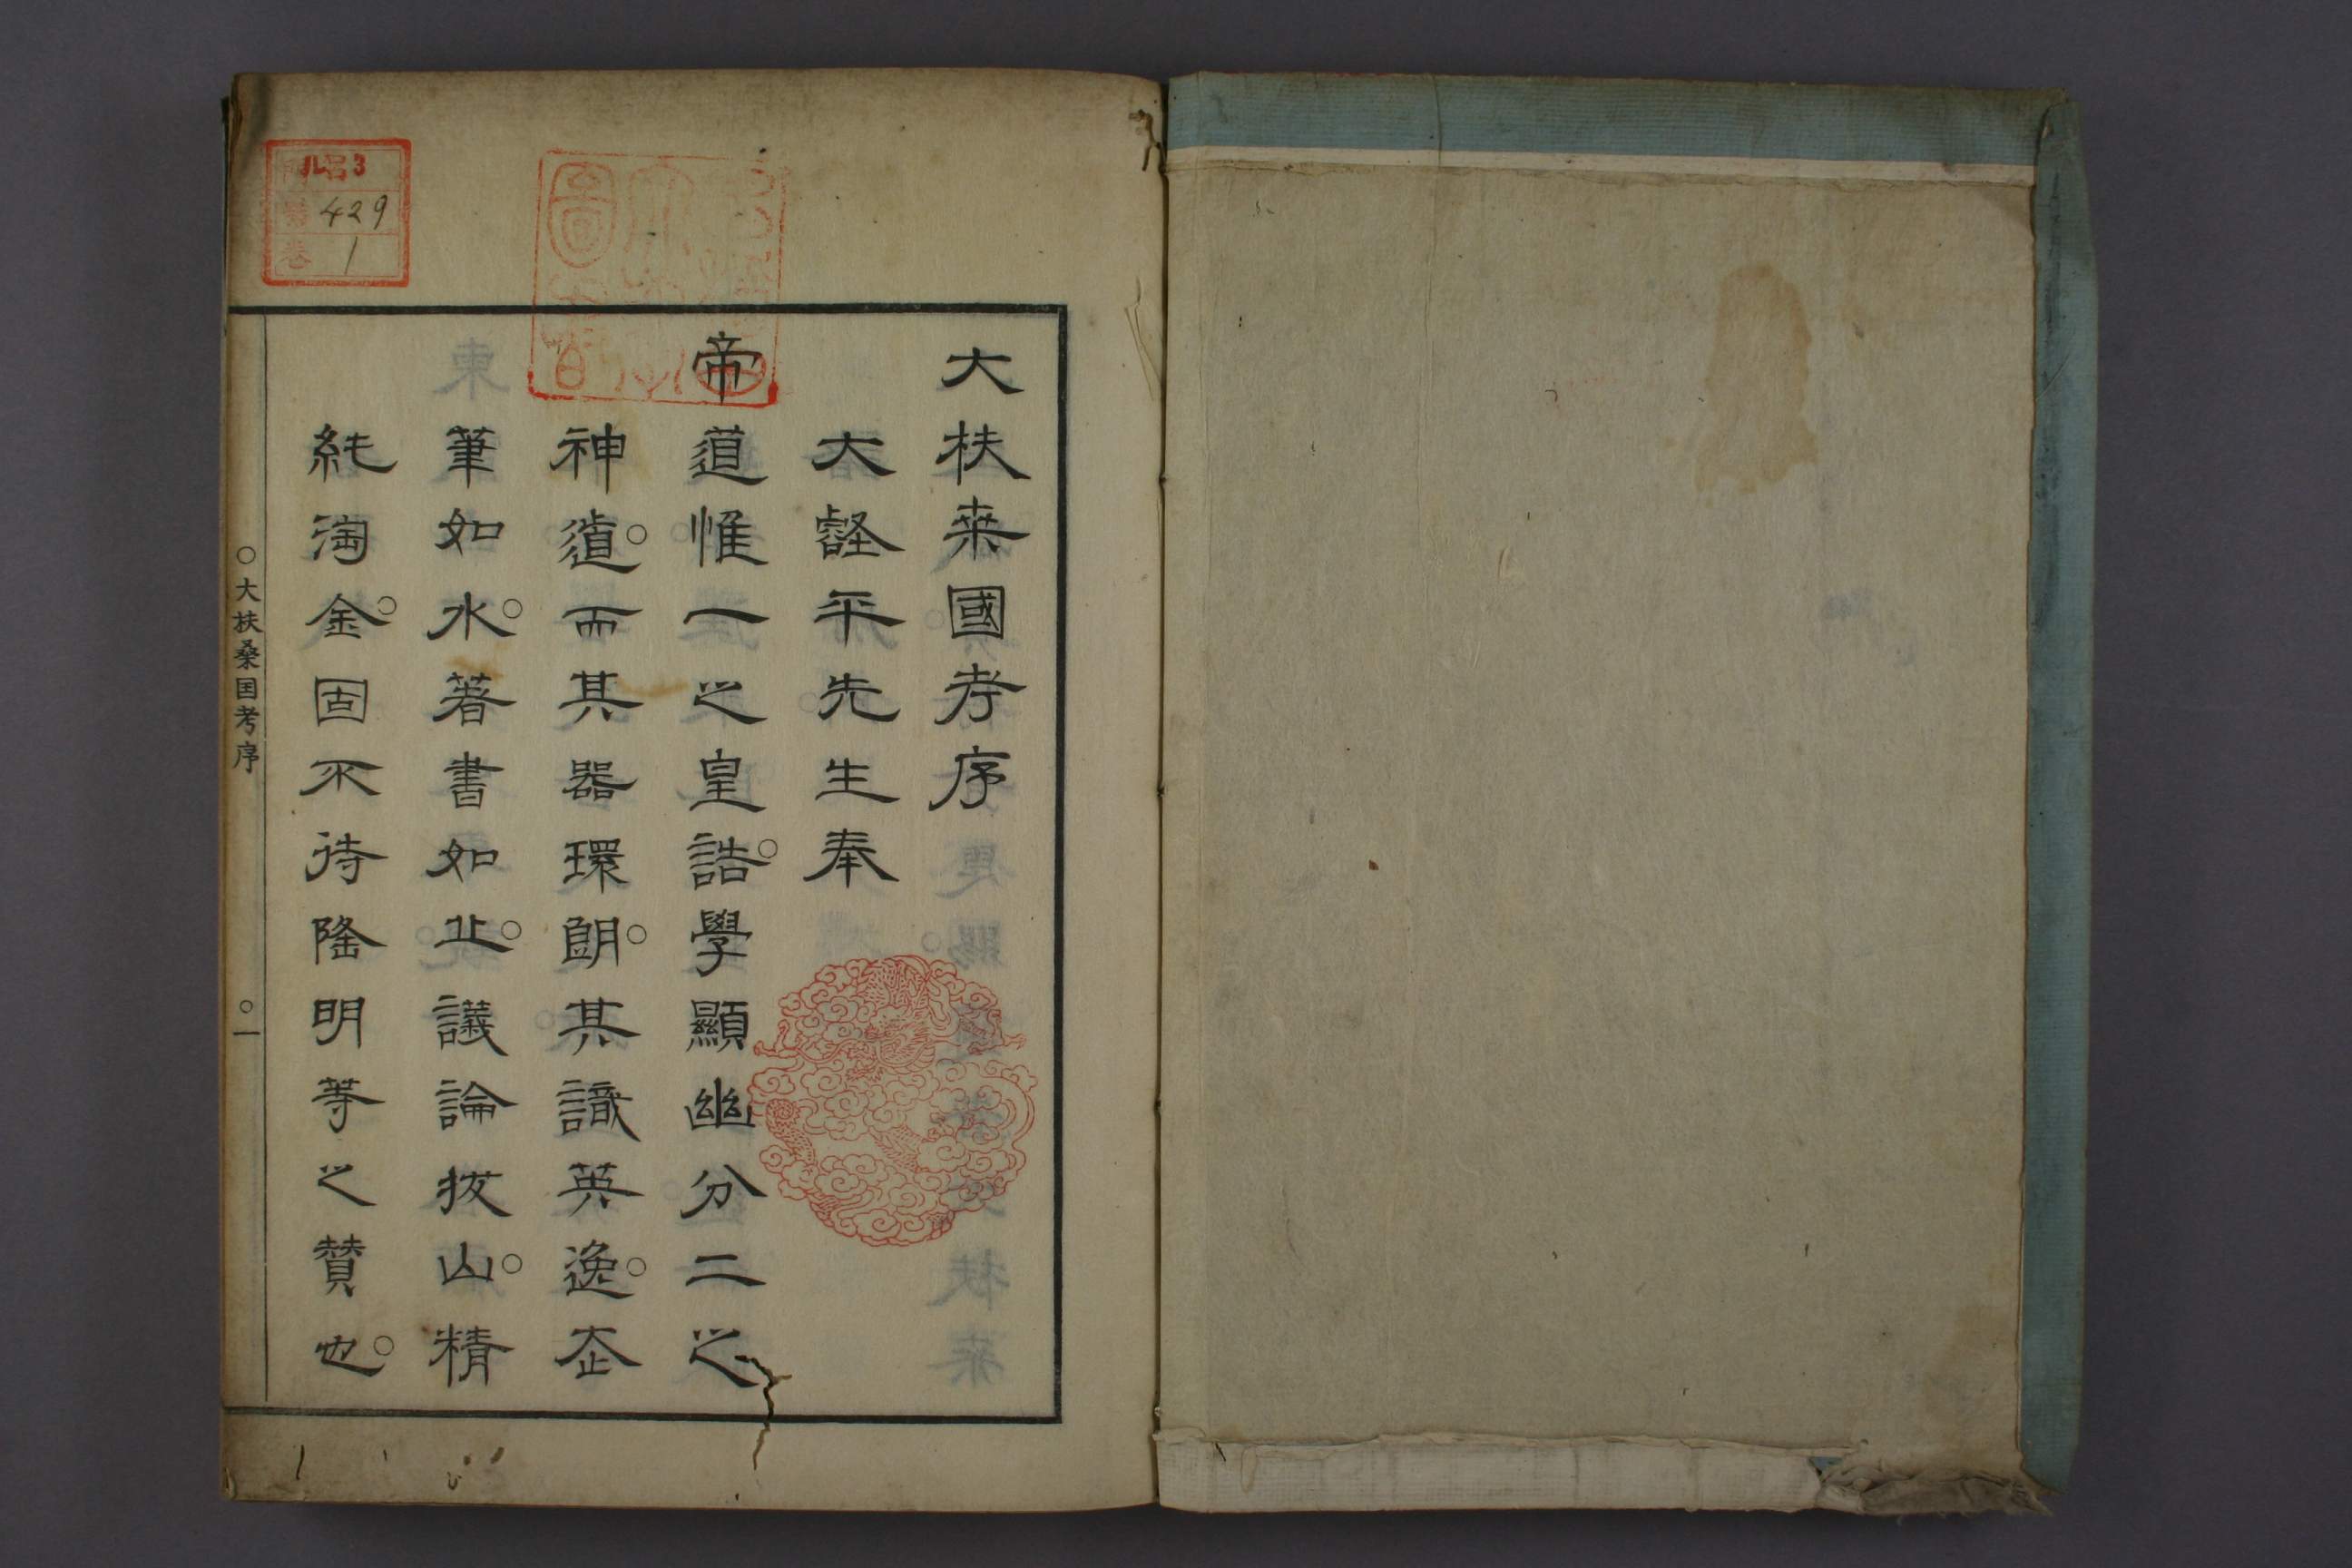 大扶桒國考序
大壑平先生奉
帝道惟一之皇誥。學顯幽分二之
神道。而其器環朗。其識英逸。夲
筆如水。著書如止。議論拔山。精
純淘金。固不待隆明等之賛也。
○大扶桑国考序 ○一
ル3
號 429
卷 1